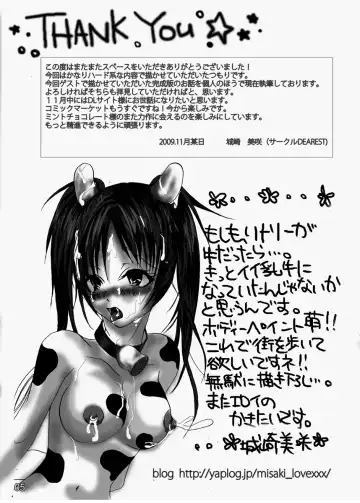 THANK YOU
この度はまたまたスペースをいただきありがとうございました！
今回はかなりハード系な内容で描かせていただいたつもりです。
今回ゲストで描かせていただいた完成版のお話を個人のほうで現在執筆しております。
よろしければそちらも拝見していただければと、思います。
１１月中にはDLサイト様にお世話になりたいと思います。
コミックマーケットもうすぐですね！今から楽しみです。
ミントチョコレート様のまた力作に会えるのを楽しみにしています。
もっと精進できるように頑張ります。
2009.11月某日 城崎 美咲（サークルDEAREST)
もしも、リドリーが
牛だったら…。
きっとイイ乳牛に
なっていたんじゃないか
と思うんです。
ボディーペイント萌!!
これで街を歩いて
欲しいですネ!!
無駄に描き下し…。
またエロイの
かきたいです。
城崎美咲
blog http://yaplog.jp/misaki_lovexxx/
65